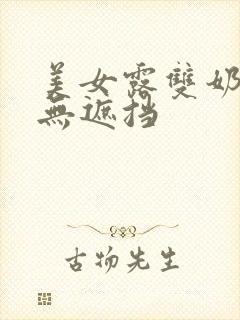 美女露雙奶
無遮挡
古物先生